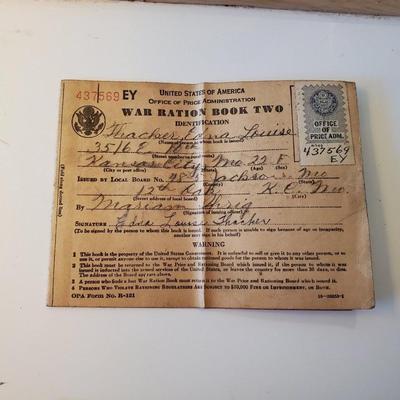 437569 EY
UNITED STATES OF AMERICA
OFFICE OF PRICE ADMINISTRATION
WAR RATION BOOK TWO
IDENTIFICATION
OFFICE
OF
PRICE ADM.
437569
EY
Thacher, Edna Louise
(Name of person to whom book is issued)
3516 E 10th
(Street number or rural route)
Kansas City Mo. 22 F
(City or post office) (State) (Age) (Sex)
ISSUED BY LOCAL BOARD NO. Jackson Mo
12th Oak K.C. Mo.
(Street address of local board) (City)
By Mariam
(Signature of issuing officer)
SIGNATURE Edna Louise Thacher
(To be signed by the person to whom this book is issued. If such person is unable to sign because of age or incapacity, another may sign in his behalf)
WARNING
1 This book is the property of the United States Government. It is unlawful to sell or give it to any other person, or to use it or permit anyone else to use it, except to obtain rationed goods for the person to whom it was issued.
2 This book must be returned to the War Price and Rationing Board which issued it, if the person to whom it was issued is inducted into the armed services of the United States, or leaves the country for more than 30 days, or dies. The address of the Board appears above.
3 A person who finds a lost War Ration Book must return it to the War Price and Rationing Board which issued it.
4 PERSONS WHO VIOLATE RATIONING REGULATIONS ARE SUBJECT TO $10,000 FINE OR IMPRISONMENT, OR BOTH.
OPA Form No. R-121